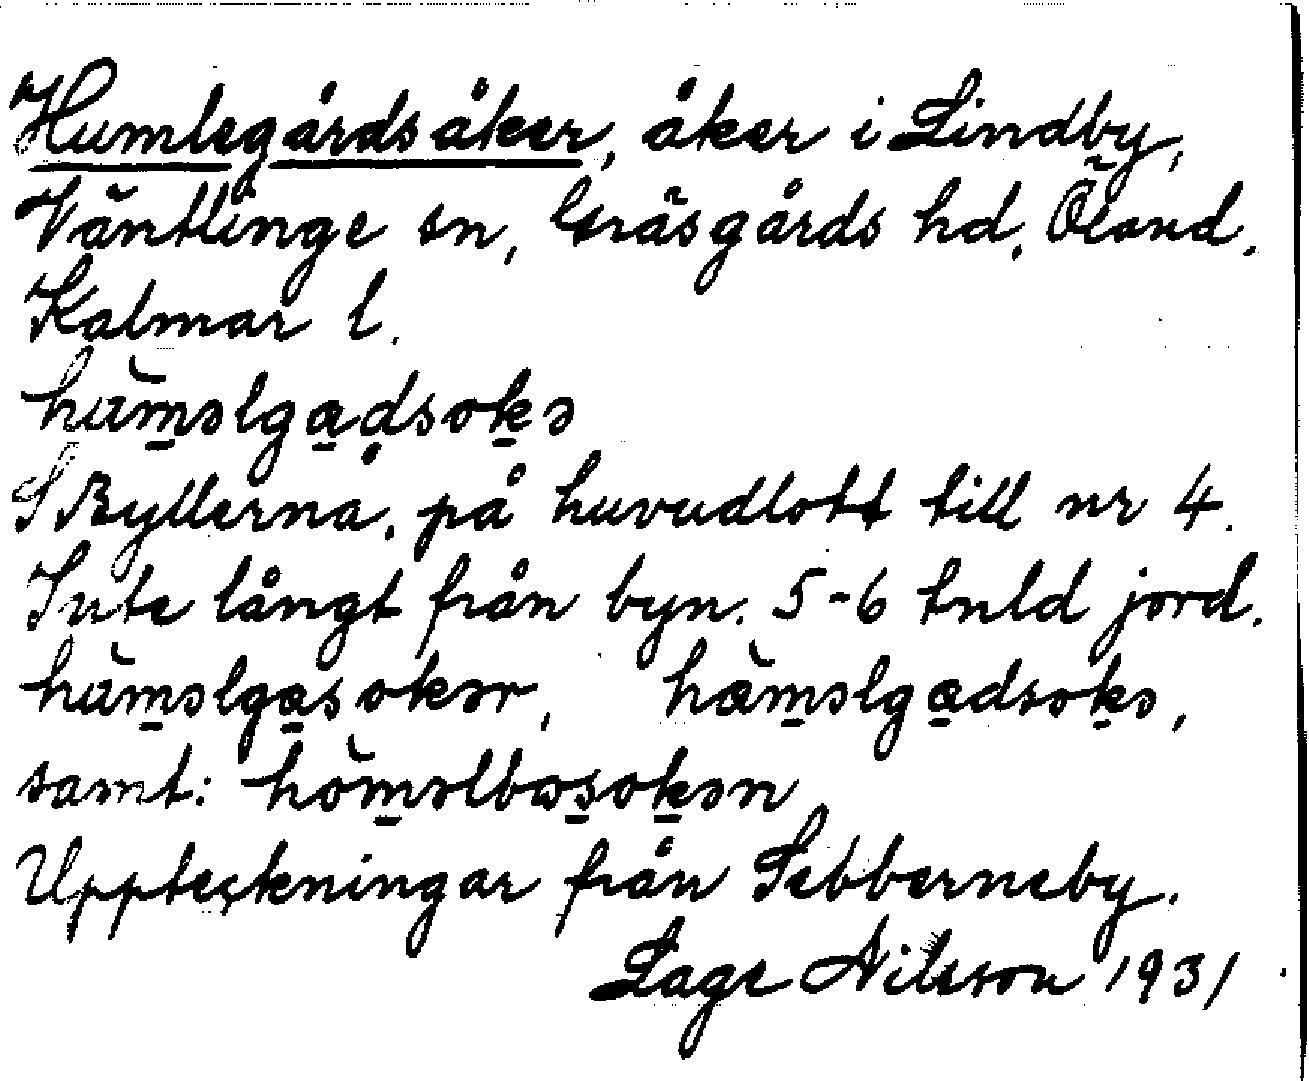 Humlegårdsåker, åker i Lindby,
Väntlinge sn, Gräsgårds hd, Öland.
Kalmar l.
hùməlgadsokə
S Ryllerna, på huvudlott till nr 4.
Inte långt från byn. 5-6 tnld jord.
hùməlgasokər, hùməlgadsokə,
samt: hòməlbosokən
Uppteckningar från Sebberneby.
Lage Nilsson 1931